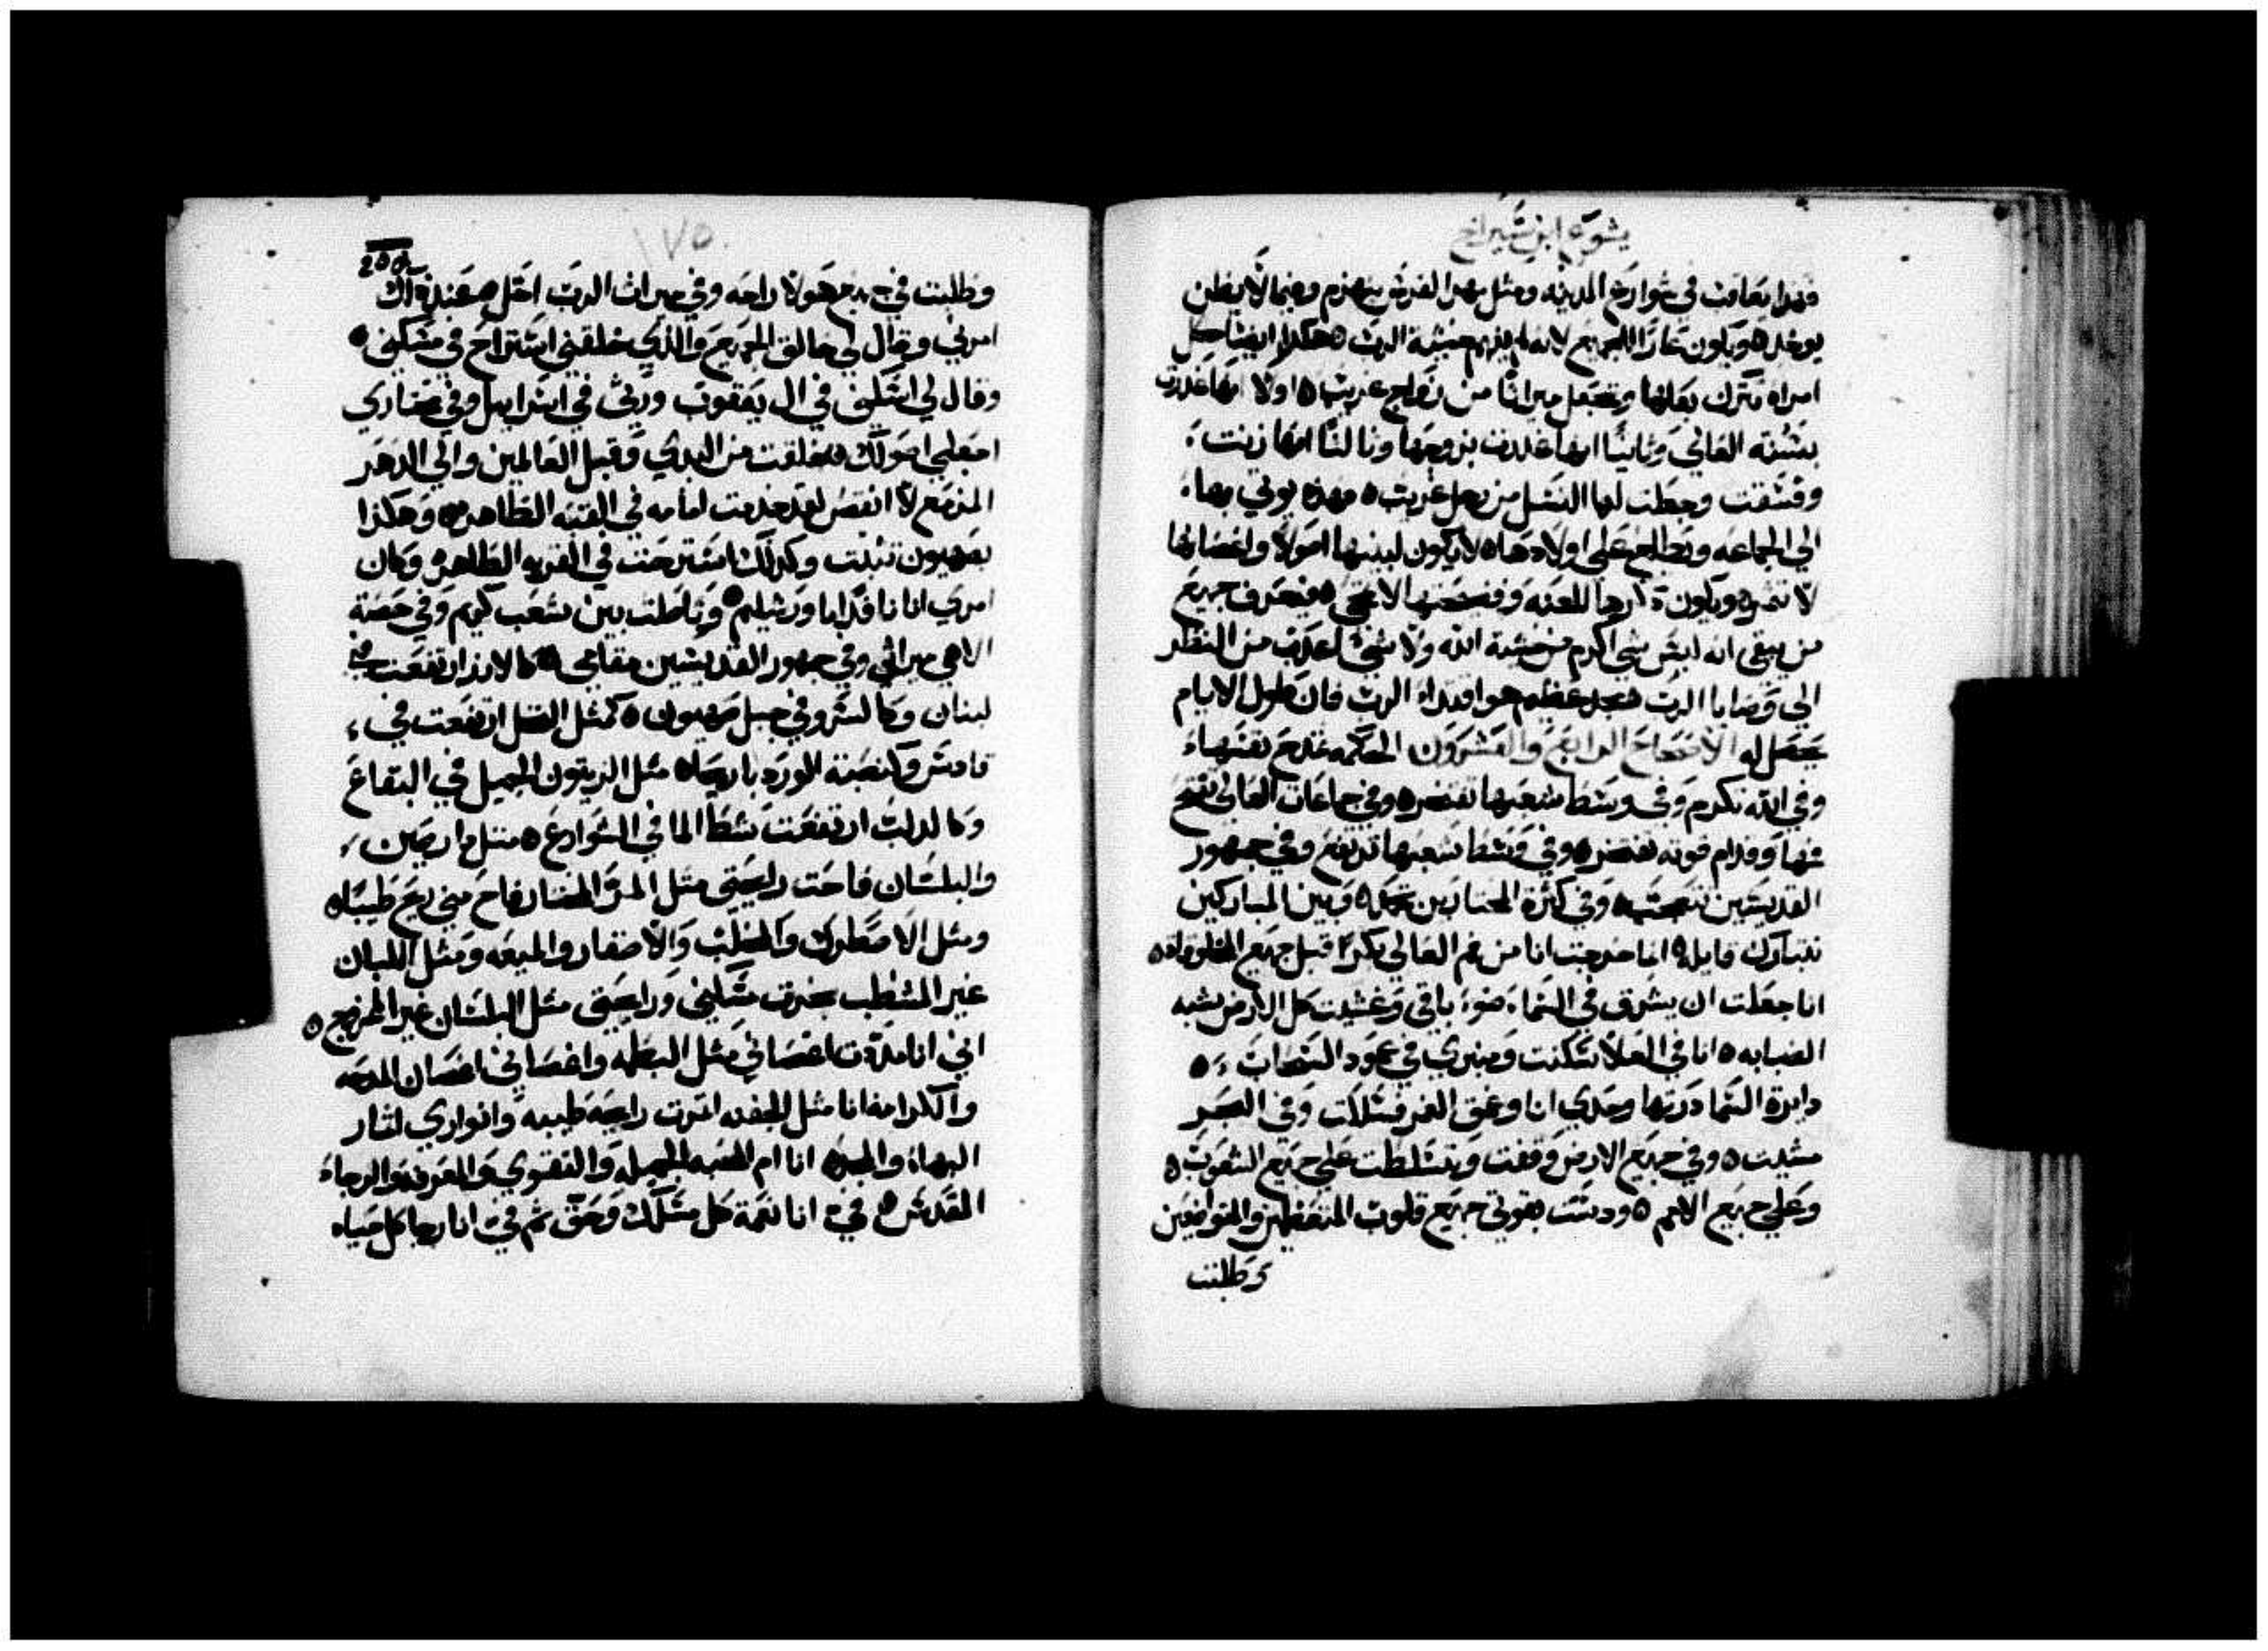 يشوع ابن شيراخ
فهدا يعاقب في شوارع المدينه ومثل مهر الفرس ينهزم وحيثما لا يظن
يوخد ويكون عارًا للجميع لانه لم يفهم خشية الرب هكدا ايضًا كل
امراه تترك بعلها وتجعل ميراثًا من زواج غريب اولا انها غدرت
بسُنة العالي وثانيًا انها غدرت بزوجها وثالثًا انها زنت
وفسقت وجعلت لها النسل من رجل غريب فهذه يوتي بها
الي الجماعه ويطالع علي اولادها لا يكون لبنيها اصولًا واغصانها
لا تثمر ويكون ذكرها للعنه وفضيحتها لا تمحي فيعرف جميع
من يبقي انه ليس شي اكرم من خشية الله ولا شي اعدب من النظر
الي وصايا الرب مجد عظيم هو اقتداء الرب فان طول الايام
يحصل له الاصحاح الرابع والعشرون الحكمه تمدح نفسها
وفي الله تكرم وفي وسط شعبها تفتخر وفي جماعات العالي تفتح
فمها وقدام قوته تفتخر وفي وسط شعبها ترتفع وفي جمهور
القديسين تتعجب وفي كثرة المختارين تحمد وبين المباركين
تتبارك قايله انا خرجت انا من فم العالي بكرًا قبل جميع المخلوقات
انا جعلت ان يشرق في السماء ضوء باقي وغشيت كل الارض شبه
الضبابه انا في العلا سكنت ومنبري في عمود السحاب
دايرة السما درتها وحدي انا وعمق الغمر فسلكت وفي البحر
مشيت وفي جميع الارض وقفت وتسلطت علي جميع الشعوب
وعلي جميع الامم ودست بقوتي جميع قلوب المتعظمين والمتواضعين
وطلبت
١٧٥
وطلبت في جميع هولا راحه وفي ميراث الرب احل حينيذ
امرني وقال لي خالق الجميع والذي خلقني استراح في مسكني
وقال لي اسكني في ال يعقوب ورثي في اسراييل وفي مختاري
اجعلي اصولك خلقت من البدي وقبل العالمين والي الدهر
المزمع لا انقص لقد خدمت امامه في القبه الطاهره وهكذا
بصهيون تثبت وكدلك استرحت في القريه الطاهره وكان
امري انا نافدًا باورشليم وتاصلت بين شعب كريم وفي حصة
الاهي ميراثي وفي جمهور القديسين مقامي كالارز ارتفعت في
لبنان وكالسرو في جبل صهيون كمثل النخل ارتفعت في
قادس وكنصبة الورد باريحا مثل الزيتون الجميل في البقاع
وكالدلب ارتفعت شط الما في الشوارع مثل دارصين
والبلسان فاحت رايحتي مثل المر المختار فاح مني ريح طيبًا
ومثل الاصطرك والمحلب والاضفار والميعه ومثل اللبان
غير المشطب بخرت مسكني ورايحتي مثل البلسان غير الممزوج
اني انا مددت اغصاني مثل البطمه واغصاني اغصان المدحه
والكرامه انا مثل الجفنه اثمرت رايحة طيبه وانواري اثمار
البهاء والمجد انا ام المحبه الجميله والتقوي والمعرفه والرجاء
المقدس فيّ انا نعمة كل مسلك وحق ثم فيّ انا رجا كل حياه